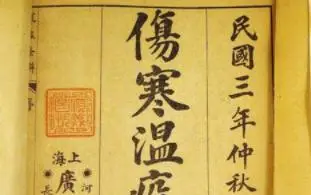 民國三年仲秋
傷寒溫疫
上海
廣
河
長